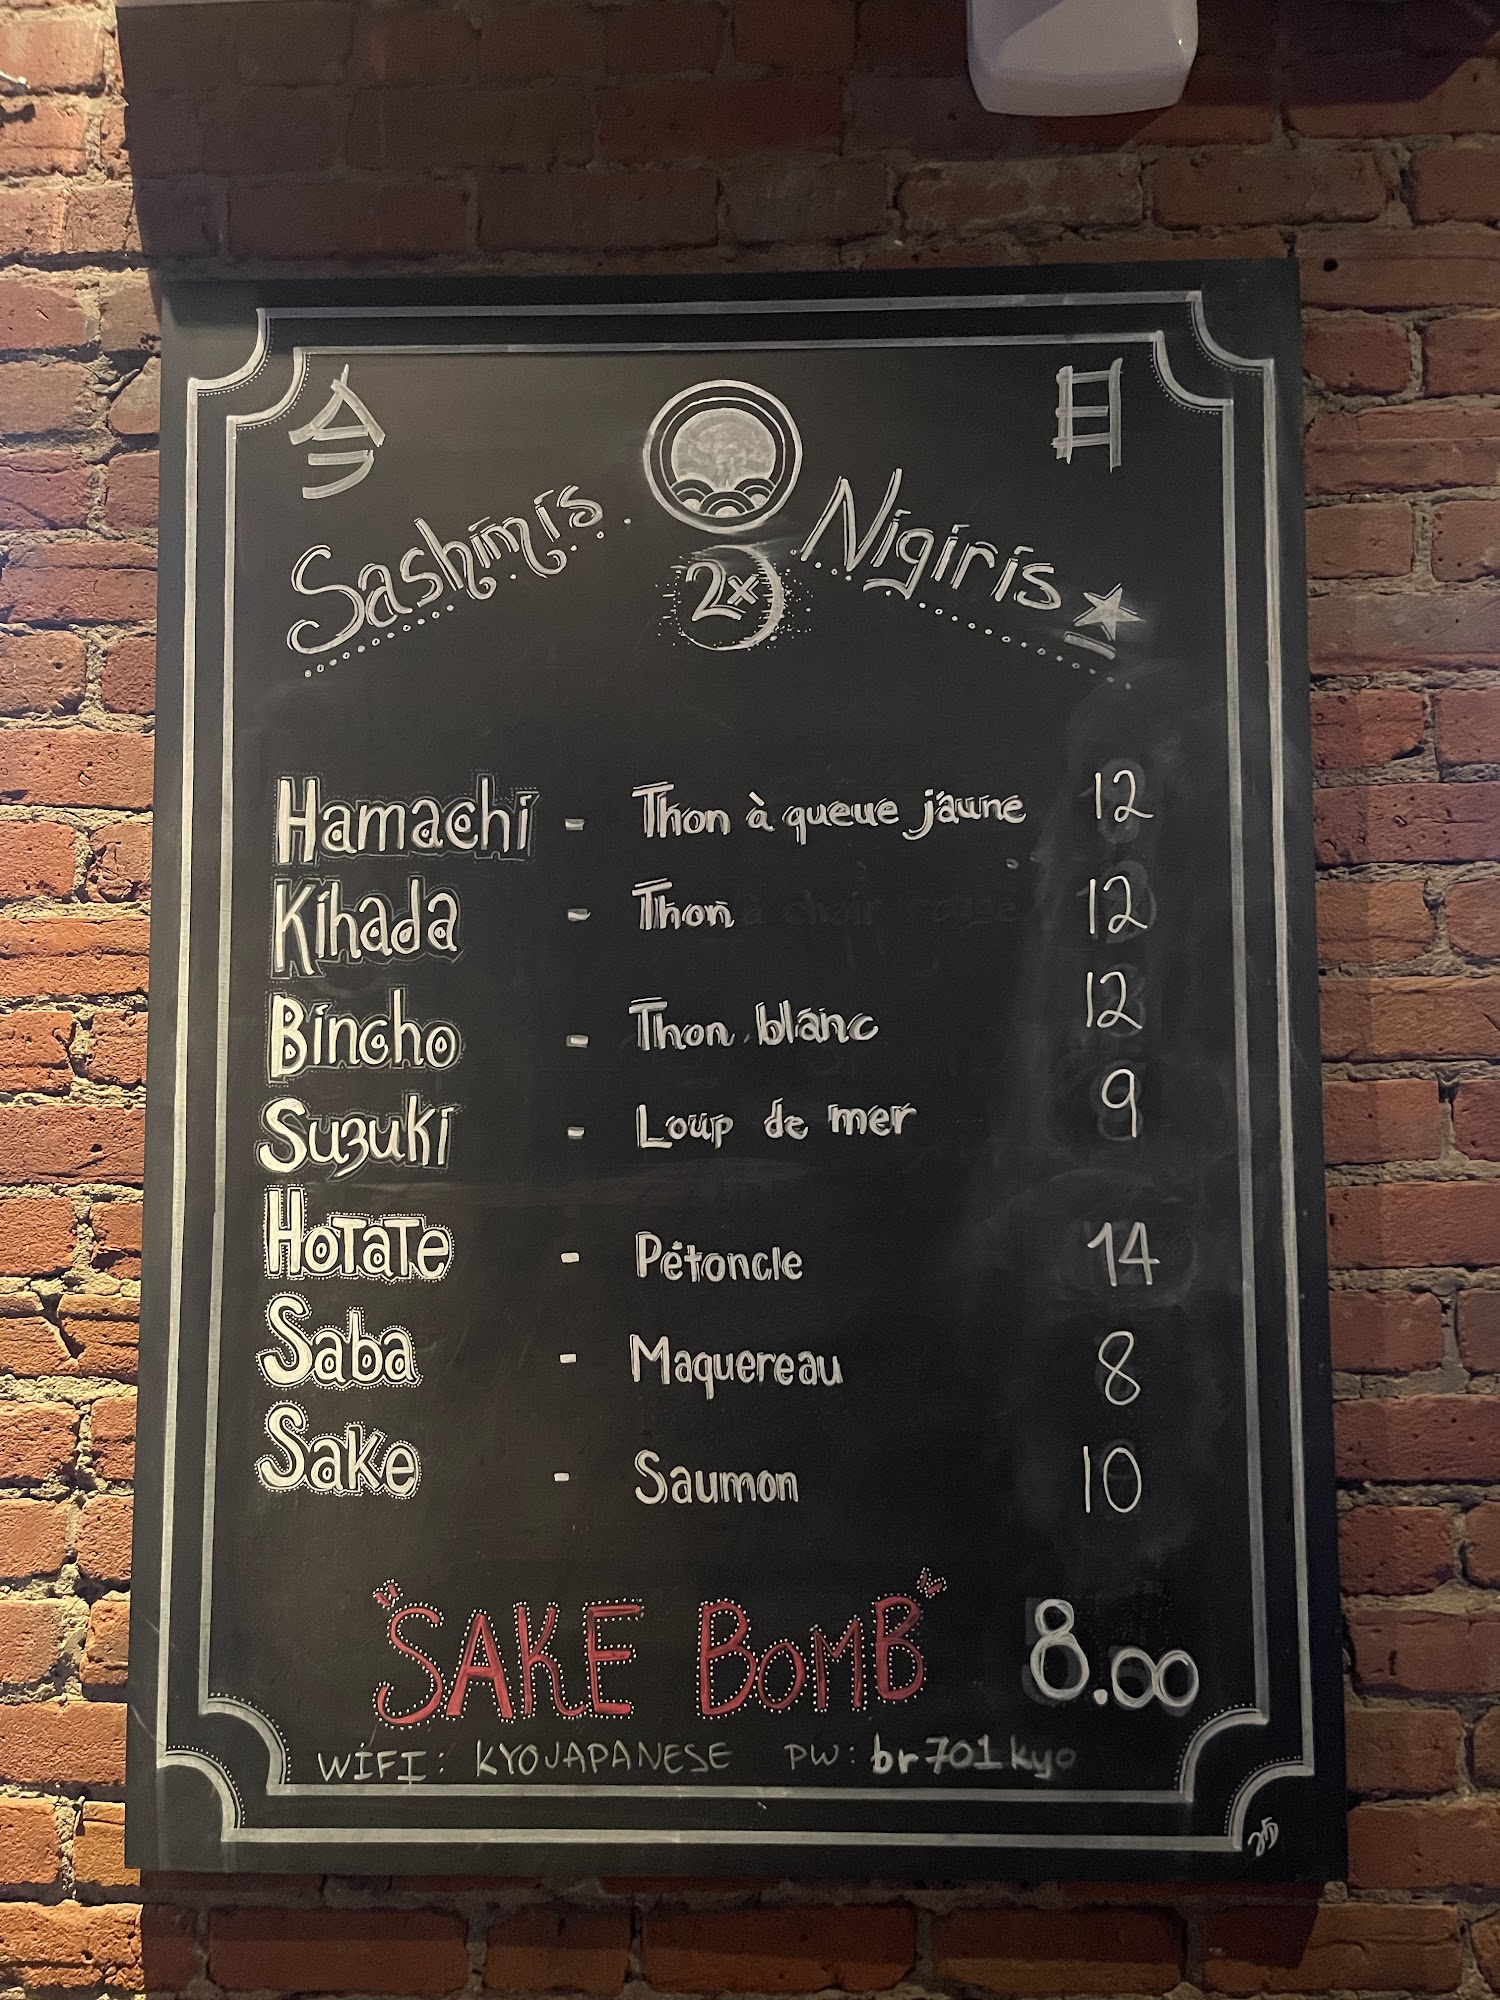 今 日
Sashimis . Nigiris
2x
Hamachi - Thon à queue jaune 12
Kihada - Thon 12
Bincho - Thon blanc 12
Suzuki - Loup de mer 9
Hotate - Pétoncle 14
Saba - Maquereau 8
Sake - Saumon 10
"SAKE BOMB" 8.00
WIFI: KYOJAPANESE PW: br701kyo